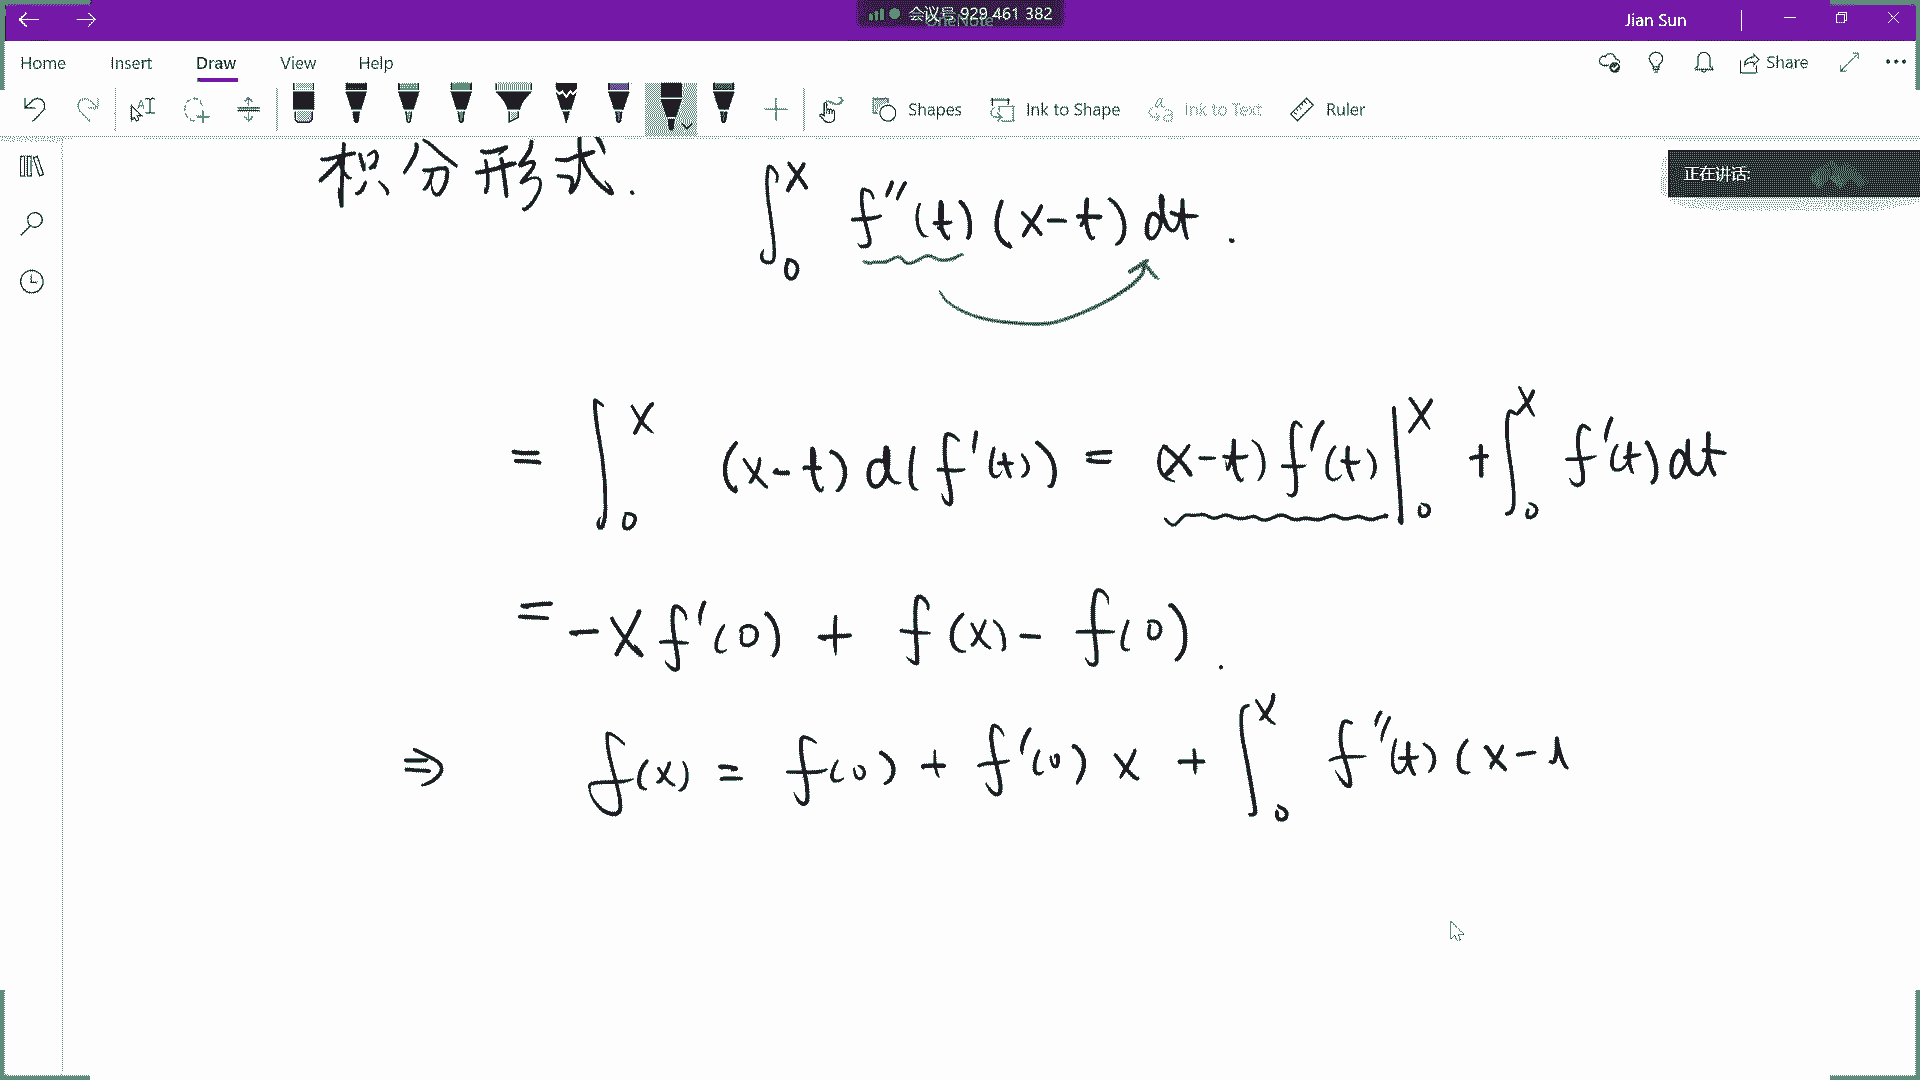 会议号 929 461 382
OneNote
Jian Sun
Home Insert Draw View Help Share
Shapes Ink to Shape Ink to Text Ruler
正在讲话:
积分形式. ∫₀ˣ f″(t)(x-t)dt.
= ∫₀ˣ (x-t)d(f′(t)) = (x-t)f′(t)|₀ˣ + ∫₀ˣ f′(t)dt
= -xf′(0) + f(x) - f(0).
⇒ f(x) = f(0) + f′(0)x + ∫₀ˣ f″(t)(x-